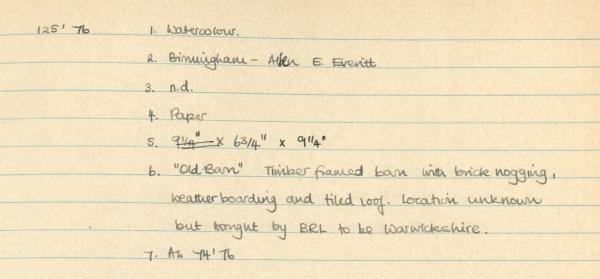 125' 76 1. Watercolour.
2. Birmingham - Allen E. Everitt
3. n.d.
4. Paper
5. 9 1/4" x 6 3/4" x 9 1/4"
6. "Old Barn" Timber framed barn with brick nogging,
weatherboarding and tiled roof. Location unknown
but thought by BRL to be Warwickshire.
7. As 74' 76